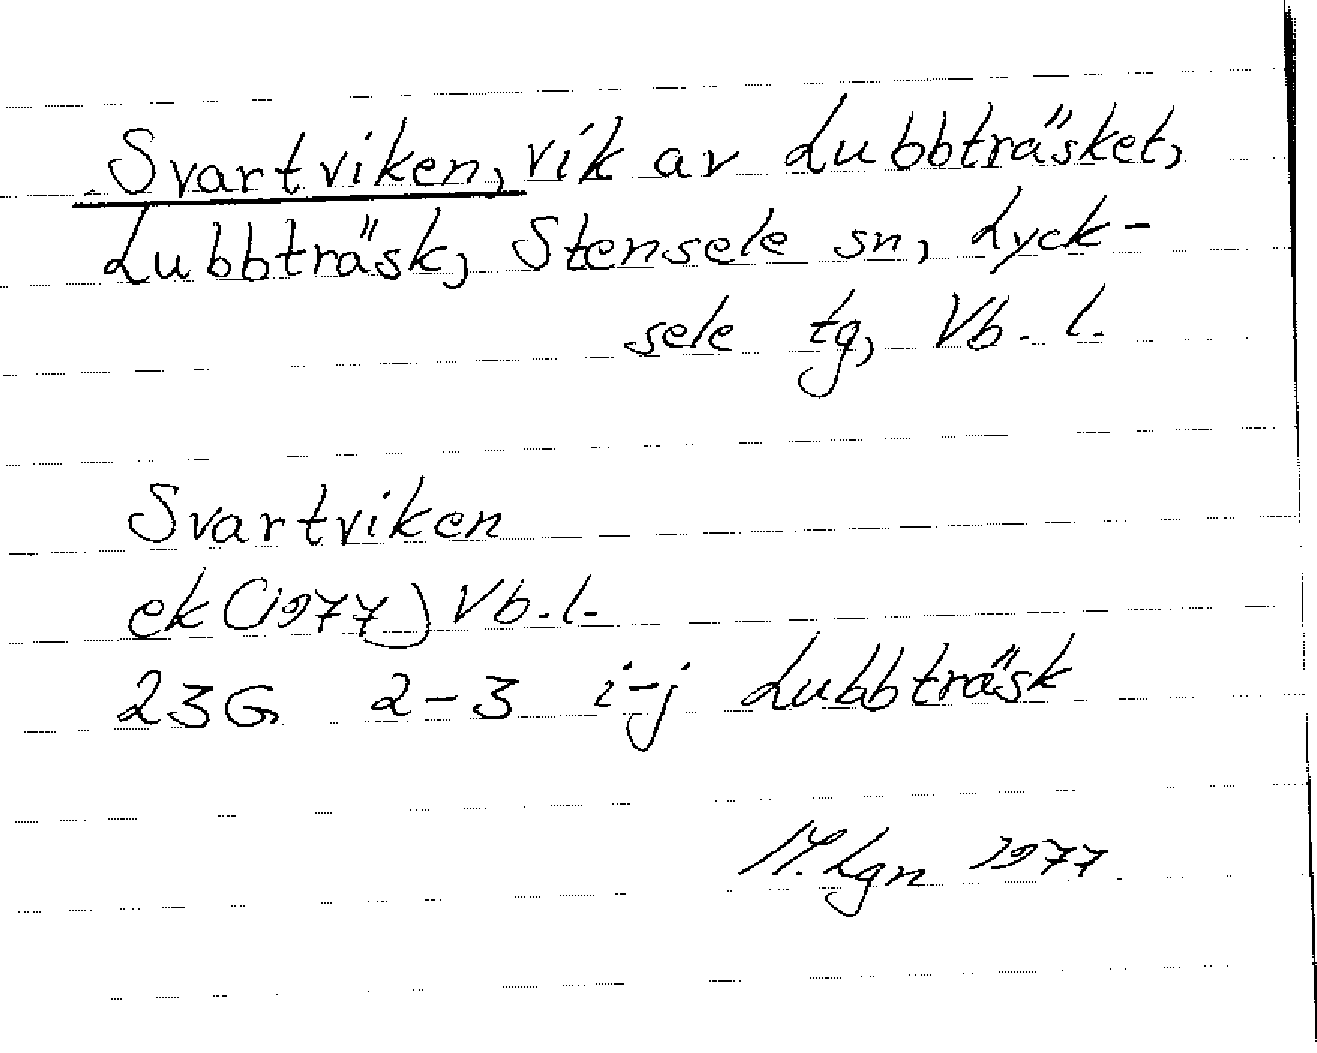 Svartviken, vik av Lubbträsket,
Lubbträsk, Stensele sn, Lyck-
sele tg, Vb. l.
Svartviken
ek (1977) Vb. l.
23G 2-3 i-j Lubbträsk
M. Lgn 1977.